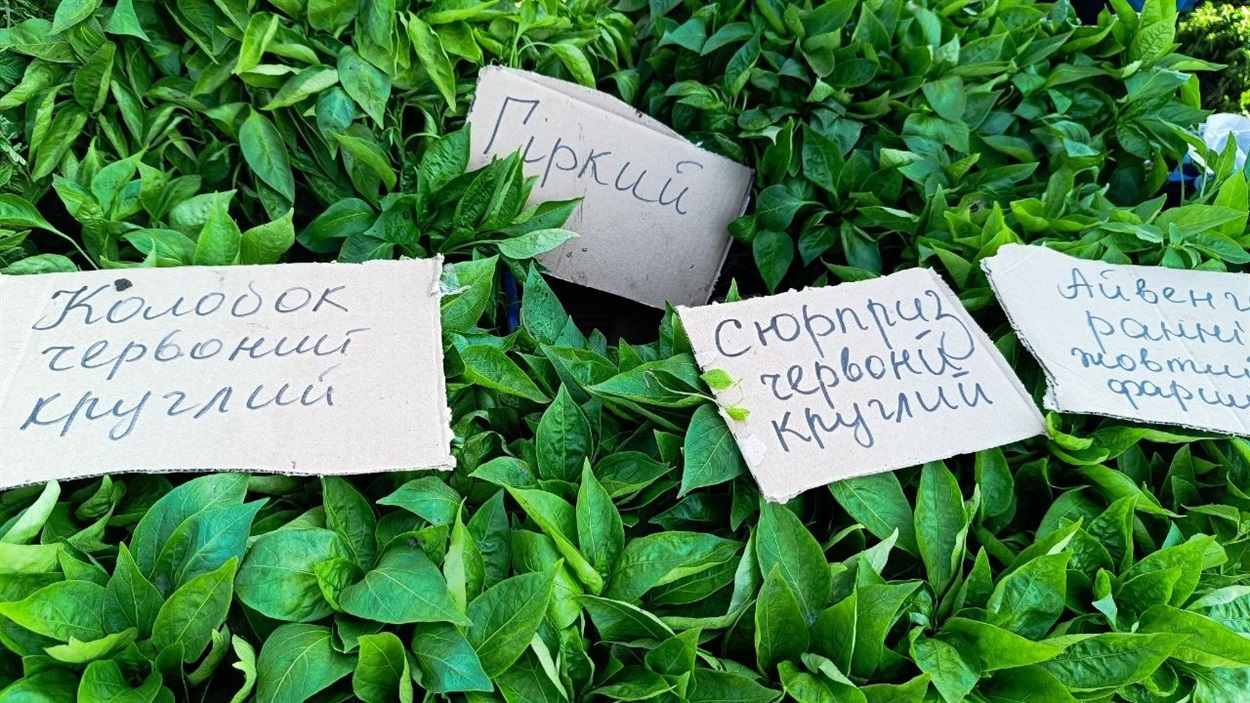 Гіркий
Колобок
червоний
круглий
сюрприз
червоний
круглий
Айвенг
ранні
жовти
фарш